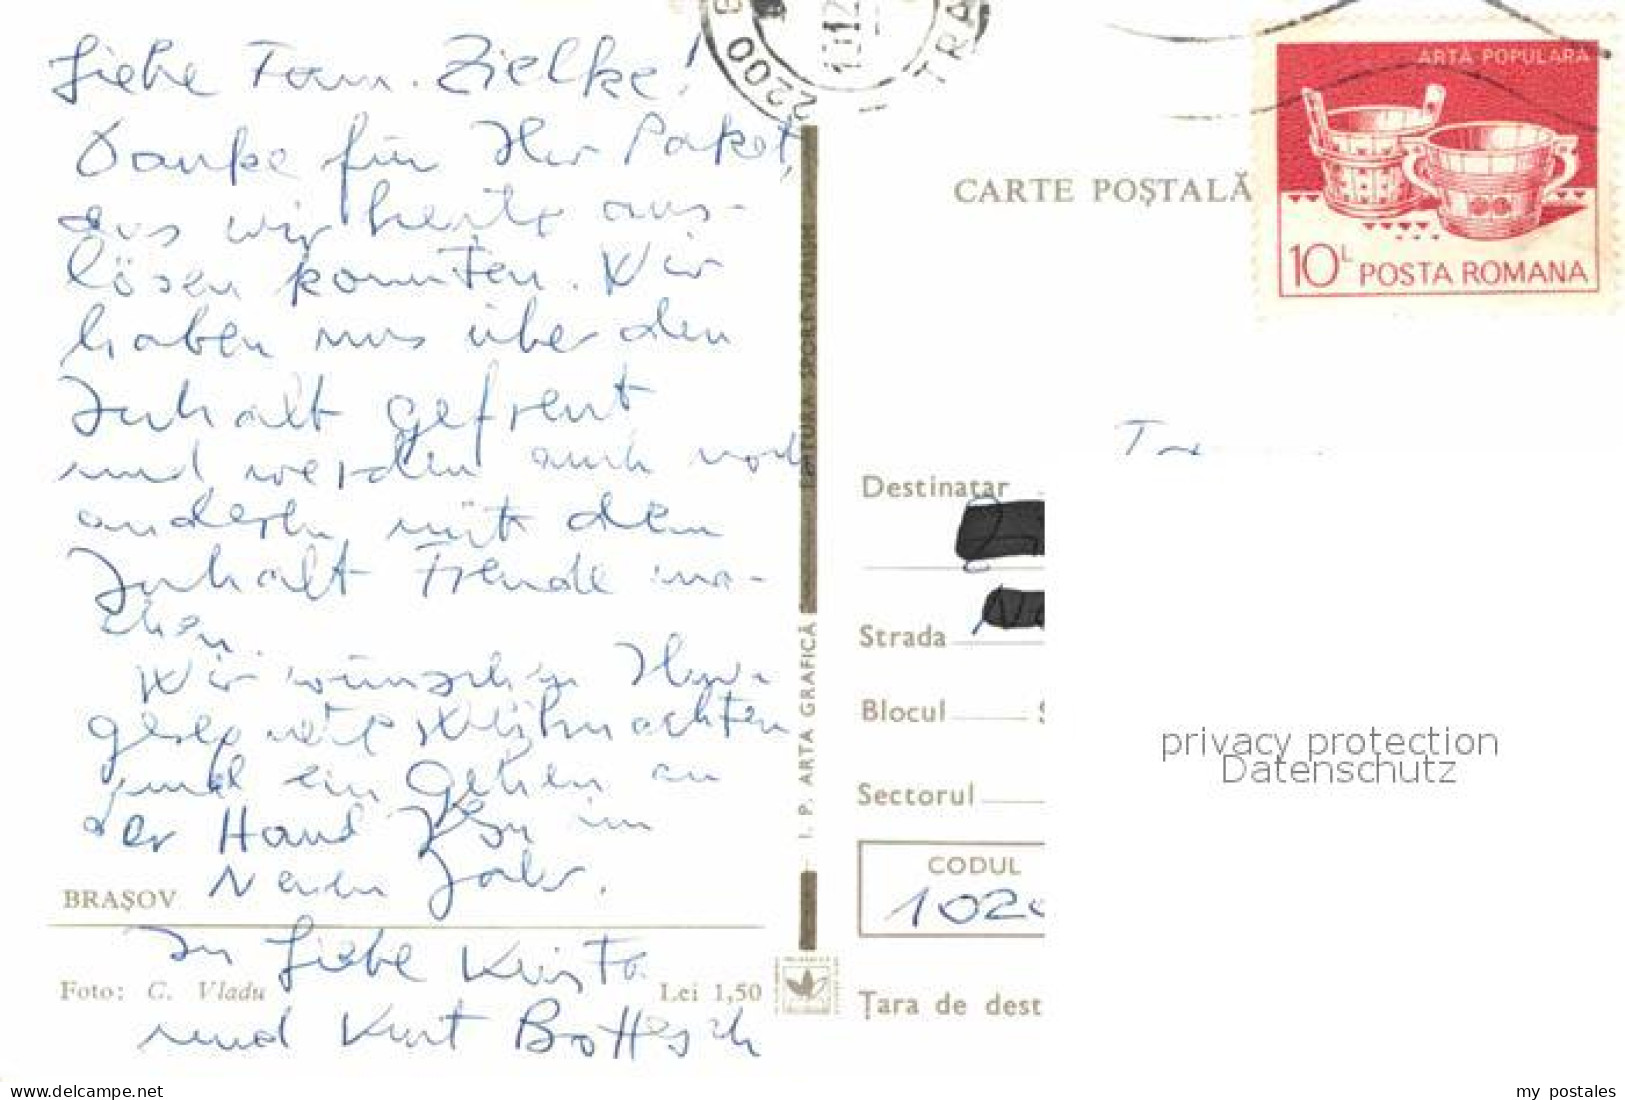 Liebe Fam. Zielke!
Danke für Ihr Paket,
das wir heute aus-
lösen konnten. Wir
haben uns über den
Inhalt gefreut
und werden auch noch
andern mit dem
Inhalt Freude ma-
chen.
Wir wünschen Ihnen
gesegnete Weihnachten
und ein Gehen an
der Hand im
Neuen Jahr.
In Liebe Krista
und Kurt Bottesch
BRAȘOV
Foto: C. Vladu
Lei 1,50
I. P. ARTA GRAFICĂ
EDITURA SPORT-TURISM
2200
CARTE POȘTALĂ
ARTA POPULARA
10L POSTA ROMANA
Destinatar
Strada
Blocul
Sectorul
CODUL
102
Țara de dest
privacy protection
Datenschutz
delcampe.net
my_postales